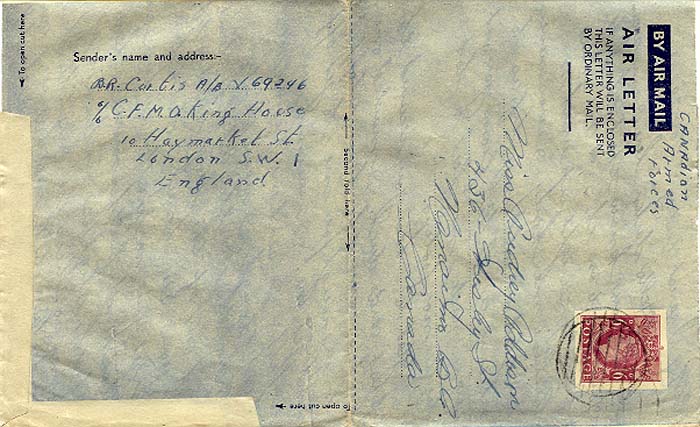 To open cut here
Sender's name and address:-
B.R. Curtis A/B V 69246
% C.F.M.O. King House
10 Haymarket St.
London S.W. 1
England
Second fold here
To open cut here
BY AIR MAIL
AIR LETTER
IF ANYTHING IS ENCLOSED
THIS LETTER WILL BE SENT
BY ORDINARY MAIL.
CANADIAN
Armed
Forces
Miss Audrey Addison
436 - Wesley St.
Nanaimo B.C.
Canada
POSTAGE